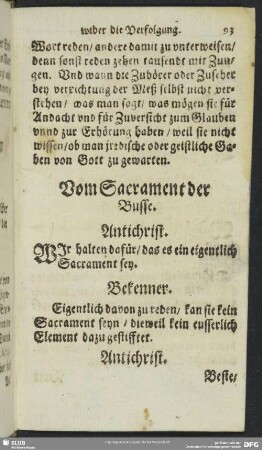 wider die Verfolgung. 93
Wort reden/ andere damit zu vnterweisen/
denn sonst reden zehen tausendt mit Zun-
gen. Vnd wann die Zuhörer oder Zuseher
bey verrichtung der Meß selbst nicht ver-
stehen/ was man sagt/ was mögen sie für
Andacht vnd für Zuversicht zum Glauben
vnnd zur Erhörung haben/ weil sie nicht
wissen/ ob man jrrdische oder geistliche Ga-
ben von Gott zu gewarten.
Vom Sacrament der
Busse.
Antichrist.
WJr halten dafür/ das es ein eigentlich
Sacrament sey.
Bekenner.
Eigentlich davon zu reden/ kan sie kein
Sacrament seyn/ dieweil kein eusserlich
Element dazu gestifftet.
Antichrist.
Beste/
SLUB
DFG